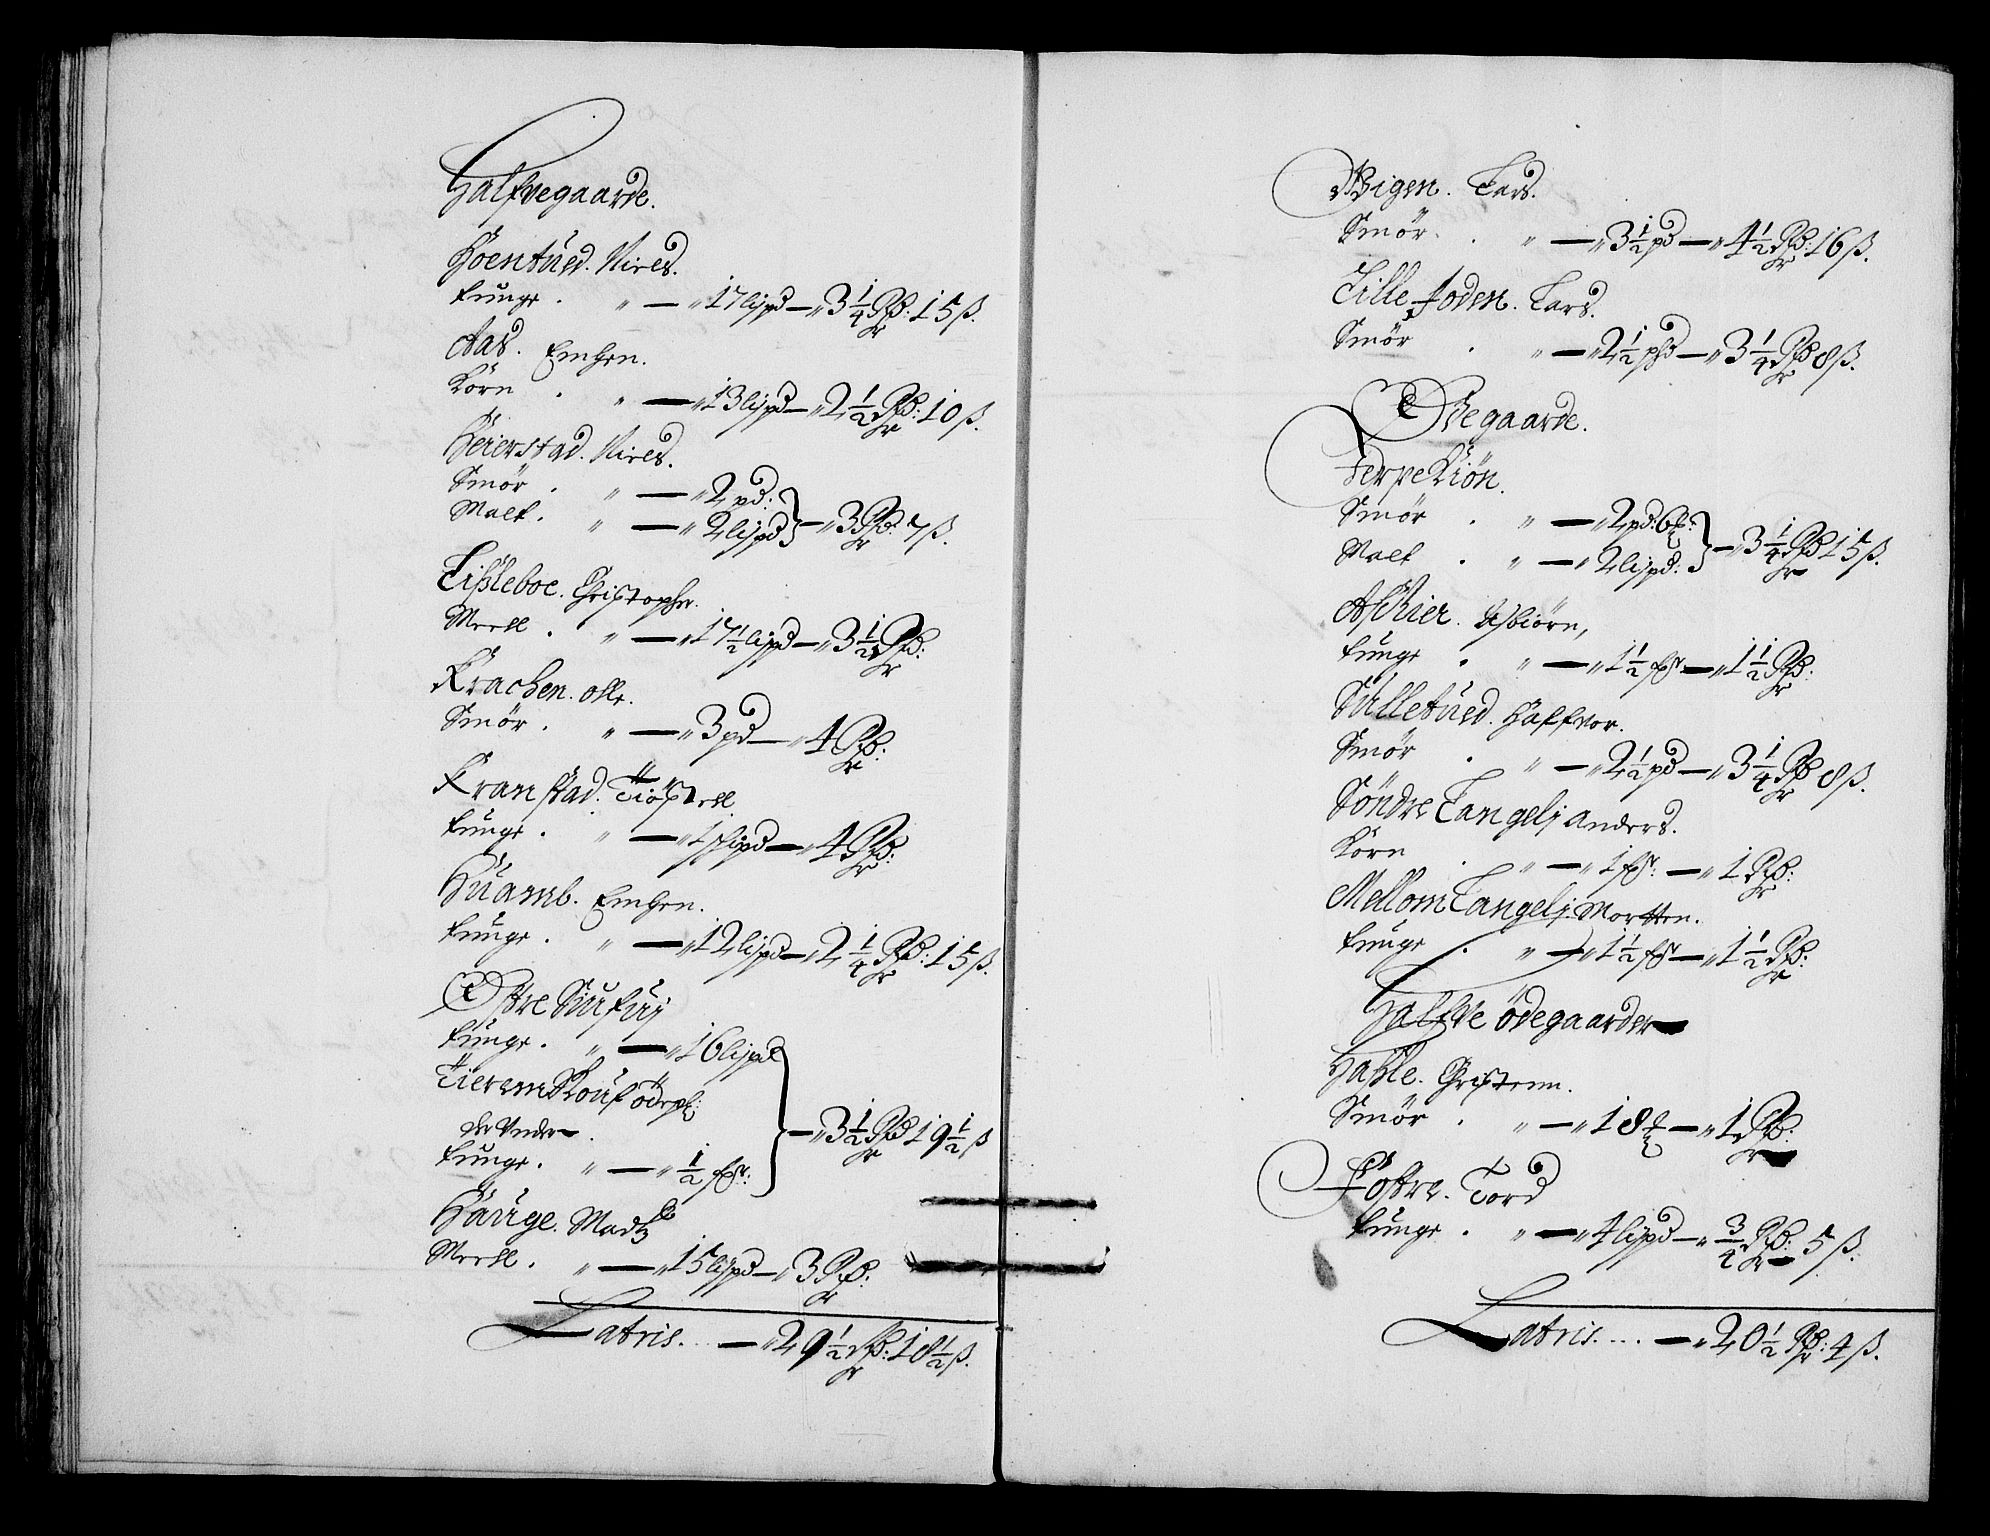 Halfvegaarde.
Hoentued. Niels.
Tunge. " — " 17 lispd — " 3 1/4 Rd: 15 ß.
Aas. Embren.
Korn . " — " 13 lispd — " 2 1/2 Rd: 10 ß.
Heierstad. Niels.
Smör . " — " 2 pd:
Malt. " — " 2 lispd — " 3 Rd: 7 ß.
Tißleboe. Christopher.
Meell . " — " 17 1/2 lispd — " 3 1/2 Rd:
Krachen. Olle.
Smör . " — " 3 pd — " 4 Rd:
Kranstad. Tiöstell
Tunge . " — " 1 skipd — " 4 Rd:
Huamb. Embren.
Tunge . " — " 12 lispd — " 2 1/4 Rd: 15 ß.
Östre
Tunge . " — " 16 lispd
der Under .
Tunge. " — " 1/2 fr: — " 3 1/2 Rd 19 1/2 ß
Hauge. Madtz
Meell . " — " 15 lispd — " 3 Rd:
Latris. . . — " 29 1/2 Rd: 18 1/2 ß.
Bigen. Lars.
Smör . " — " 3 1/2 pd — " 4 1/2 Rd: 16 ß.
Lille Foden. Lars.
Smör . " — " 2 1/2 pd — " 3 1/4 Rd 8 ß.
Ödegaarde.
Ferpekiön.
Smör . " — " 2 pd: 6
Malt . " — " 2 lispd: — " 3 1/4 Rd 15 ß.
Askier. Asbiörn,
Tunge . " — " 1 1/2 fr — " 1 1/2 Rd:
Sulletued. Halfvor.
Smör . " — " 2 1/2 pd — " 3 1/4 Rd 8 ß.
Söndre Tangelj Anders.
Korn . " — " 1 fr: — " 1 Rd:
Mellom Tangelj Mortten.
Tunge . " — " 1 1/2 fr — " 1 1/2 Rd:
Halfve ödegaarder
Hahle. Christenn.
Smör . " — " 18 — " 1 Rd:
Fostre. Tord
Tunge . " — " 4 lispd — " 3/4 Rd: 5 ß.
Latris. . . . — " 20 1/2 Rd: 4 ß.